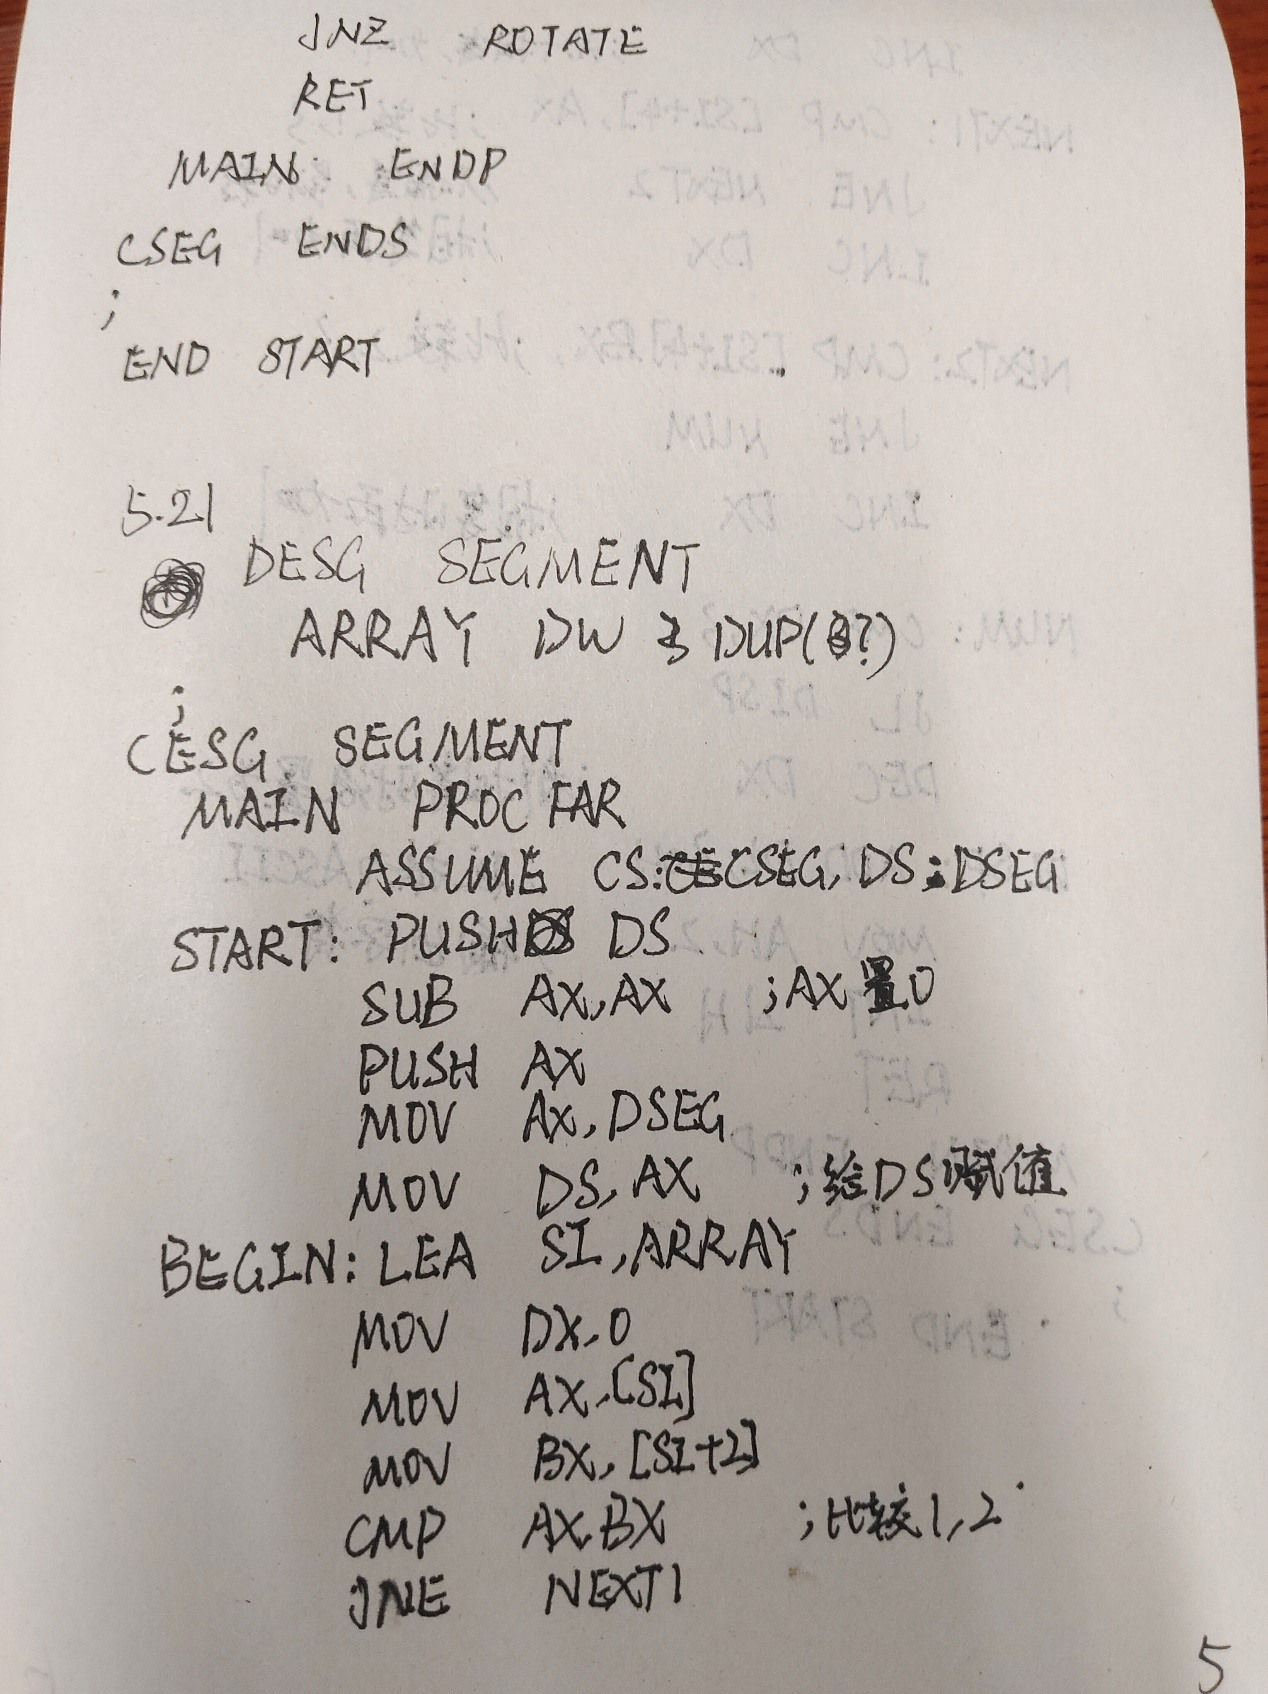 JNZ ROTATE
RET
MAIN ENDP
CSEG ENDS
;
END START
5.21
DESG SEGMENT
ARRAY DW 3 DUP(?)
;
CESG SEGMENT
MAIN PROC FAR
ASSUME CS:CSEG, DS:DSEG
START: PUSH DS
SUB AX,AX ;AX置0
PUSH AX
MOV AX,DSEG
MOV DS,AX ;给DS赋值
BEGIN: LEA SI,ARRAY
MOV DX,0
MOV AX,[SI]
MOV BX,[SI+2]
CMP AX,BX ;比较1,2
JNE NEXT1
5